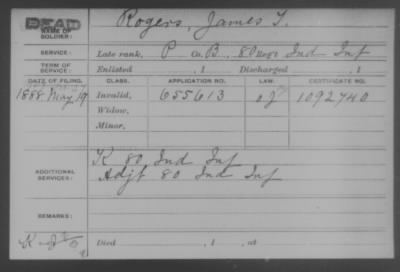 DEAD
NAME OF SOLDIER: Rogers, James T.
SERVICE: Late rank, P Co. B, 80 Reg't Ind Inf
TERM OF SERVICE: Enlisted , 1 Discharged , 1
DATE OF FILING. CLASS. APPLICATION NO. LAW. CERTIFICATE NO.
1888 May 19 Invalid, 655613 1092740
Widow,
Minor,
ADDITIONAL SERVICES: K 80 Ind Inf
Adjt 80 Ind Inf
REMARKS:
Died , 1 , at